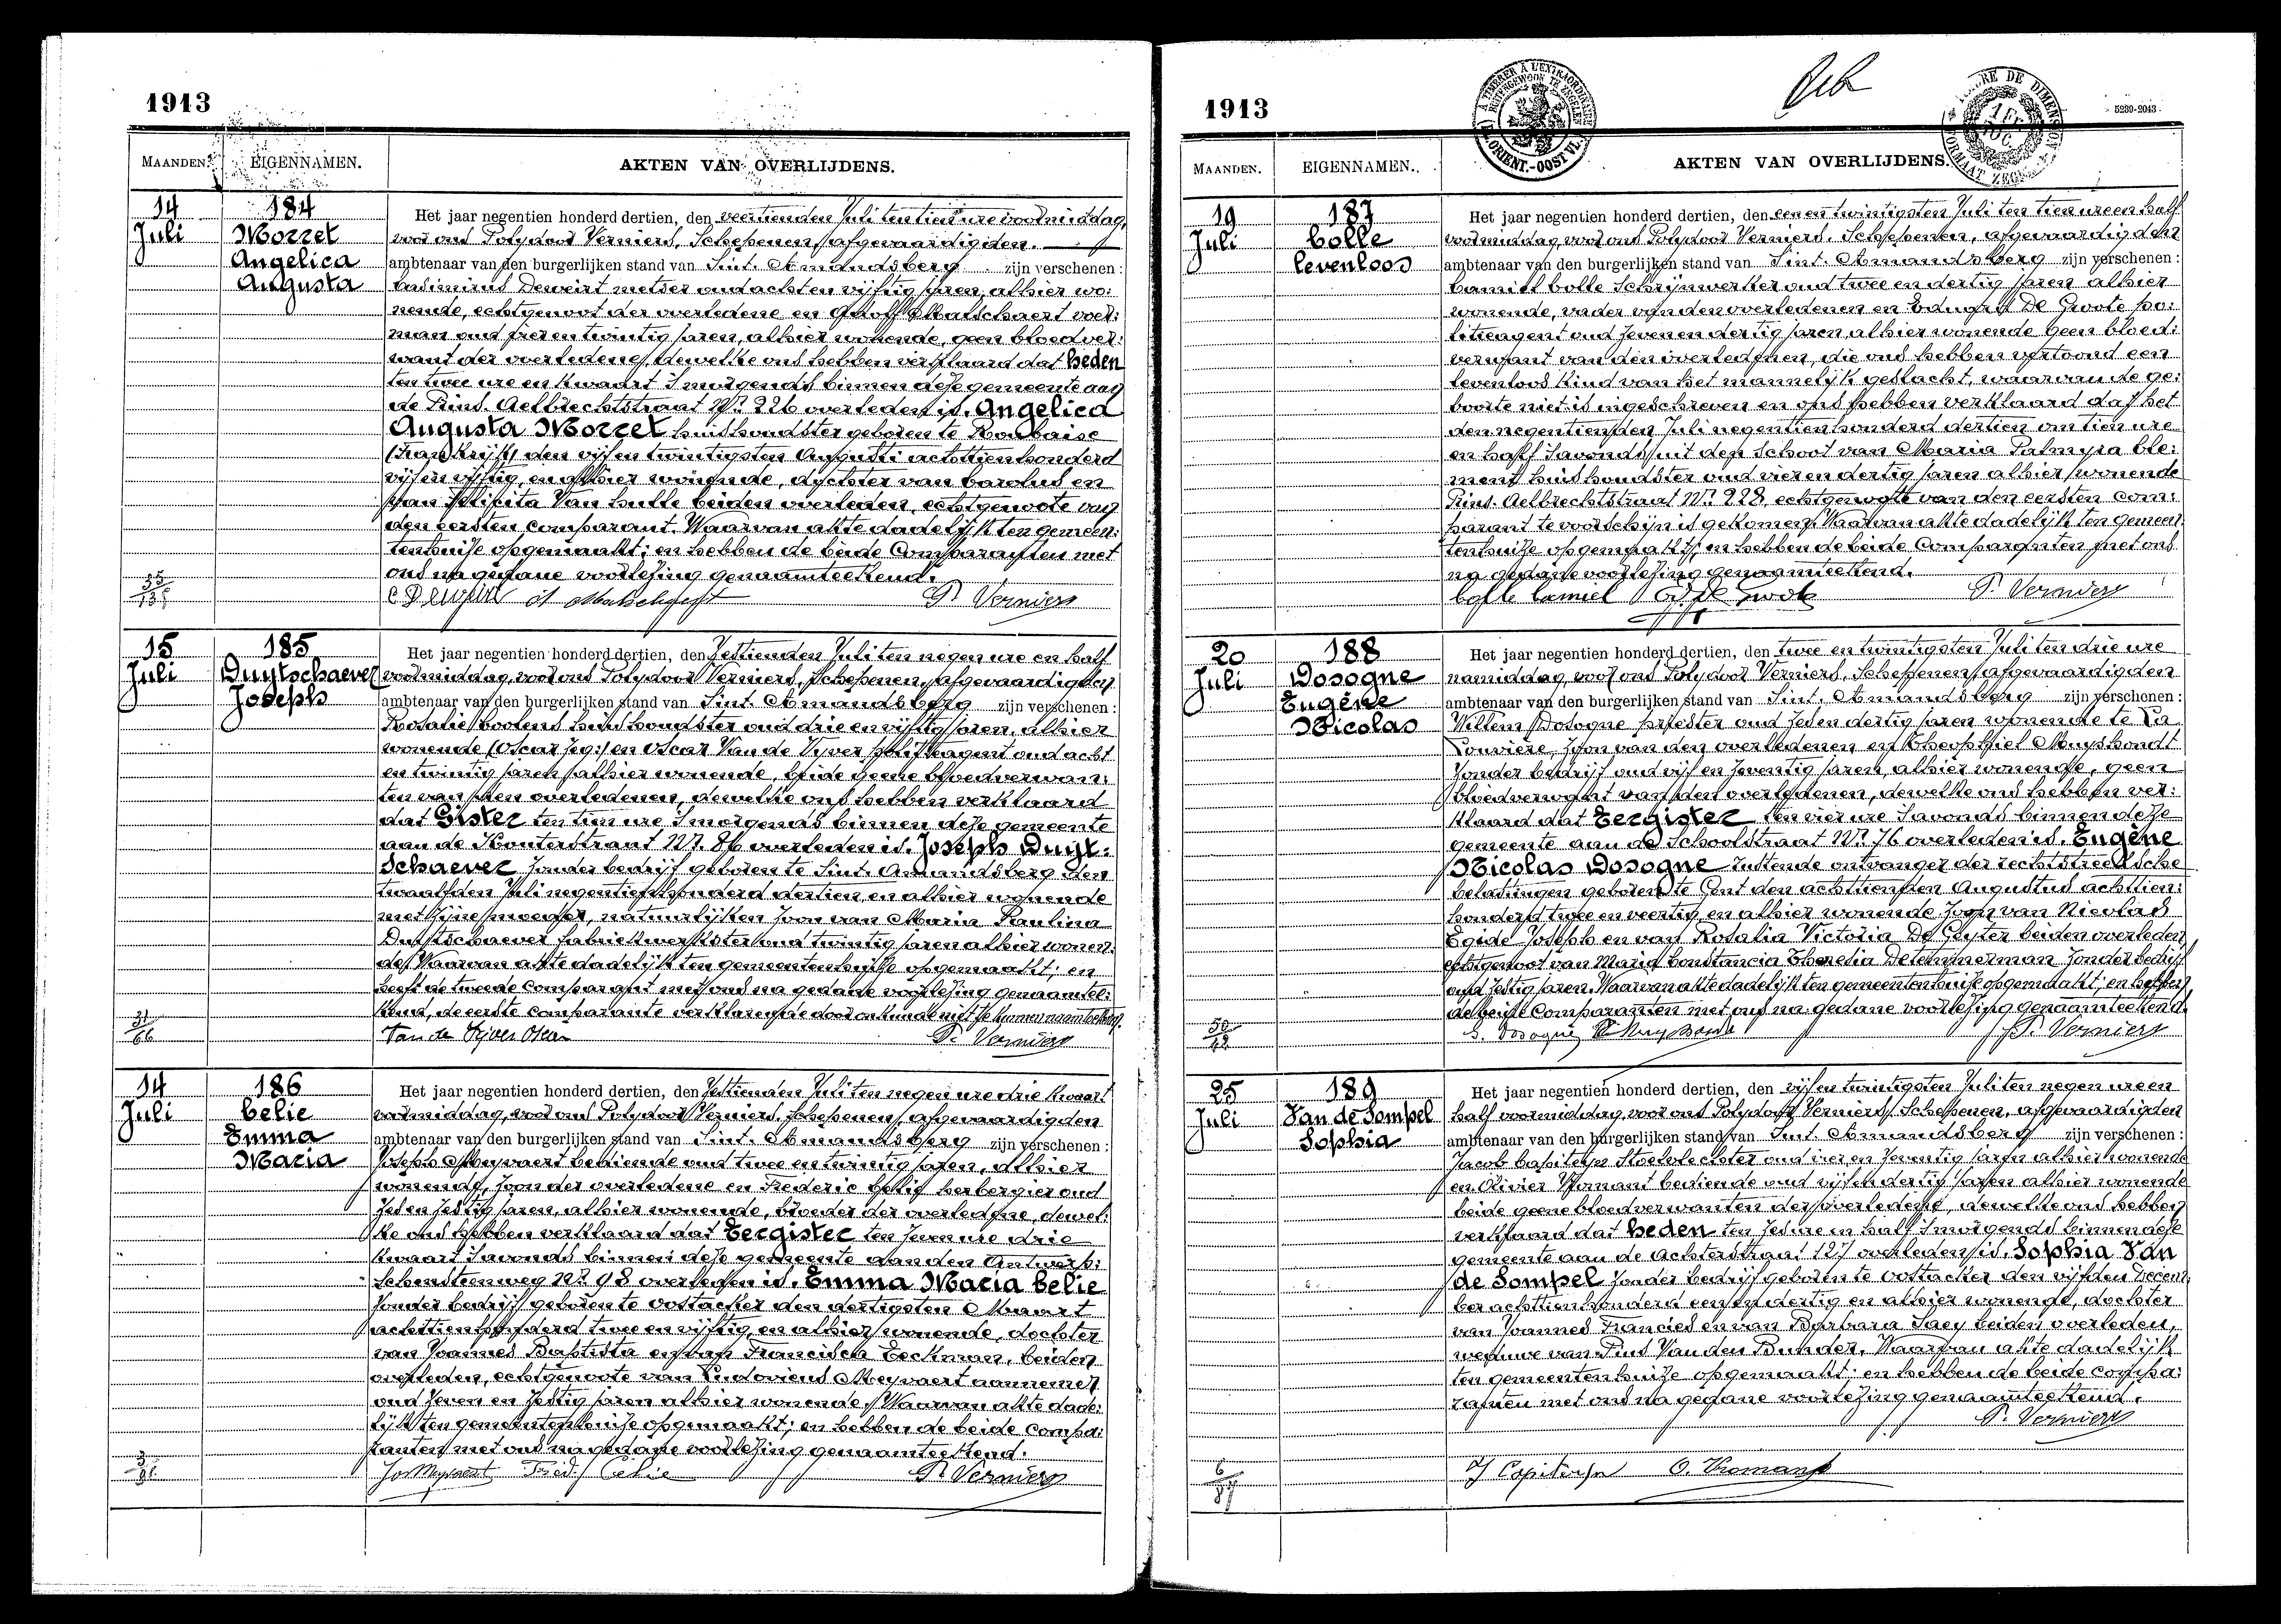 1913
MAANDEN. EIGENNAMEN. AKTEN VAN OVERLIJDENS.
14 Juli
184
Morrel
Angelica
Augusta
Het jaar negentien honderd dertien, den veertienden Juli ten tien ure voormiddag,
voor ons Polydoor Verniers, Schepenen, afgevaardigden
ambtenaar van den burgerlijken stand van Sint-Amandsberg zijn verschenen:
Casimirus Deweirt metser oud acht en vijftig jaren, alhier wo:
nende, echtgenoot der overledene en Adolf Matschaert voer:
man oud vier en twintig jaren, alhier wonende, geen bloedver:
want der overledene, dewelke ons hebben verklaard dat heden
ten twee ure en kwaart 's morgends binnen deze gemeente aan
de Prins Aelbrechtstraat Nr. 226 overleden is, Angelica
Augusta Morrel huishoudster geboren te Roubaise
(Frankrijk) den vijf en twintigsten Augusti achttien honderd
vijf en vijftig, en alhier wonende, dochter van Carolus en
van Felicita Van Hulle beiden overleden, echtgenoote van
den eersten comparant. Waarvan akte dadelijk ten gemeen:
tenhuise opgemaakt; en hebben de beide Comparanten met
ons na gedane voorlezing genaamteekend.
P. Verniers
15 Juli
185
Duytschaever
Joseph
Het jaar negentien honderd dertien, den zestienden Juli ten negen ure en half
voormiddag, voor ons Polydoor Verniers, Schepenen, afgevaardigden
ambtenaar van den burgerlijken stand van Sint-Amandsberg zijn verschenen:
Rosalie Coolens huishoudster oud drie en vijftig jaren, alhier
wonende en Oscar Van de Vyver politieagent oud acht
en twintig jaren alhier wonende, beide geene bloedverwan:
ten van den overledenen, dewelke ons hebben verklaard
dat Gister ten tien ure 's morgends binnen deze gemeente
aan de Kouterstraat Nr. 86 overleden is, Joseph Duyt:
schaever zonder bedrijf geboren te Sint-Amandsberg den
twaalfden Juli negentien honderd dertien en alhier wonende
met zijne moeder, natuurlijken zoon van Maria Paulina
Duytschaever fabriekwerkster oud twintig jaren alhier wonen:
de. Waarvan akte dadelijk ten gemeentenhuize opgemaakt; en
heeft de tweede Comparant met ons na gedane voorlezing genaamtee:
kend, de eerste comparante verklarende door onkunde niet te kunnen naamteekenen.
Van de Vyver Oscar P. Verniers
14 Juli
186
Celie
Emma
Maria
Het jaar negentien honderd dertien, den zestienden Juli ten negen ure drie kwaart
voormiddag, voor ons Polydoor Verniers, Schepenen, afgevaardigden
ambtenaar van den burgerlijken stand van Sint-Amandsberg zijn verschenen:
Joseph Meyvaert bediende oud twee en twintig jaren, alhier
wonende, zoon der overledene en Frederic Celie herbergier oud
zes en zestig jaren, alhier wonende, broeder der overledene, dewel:
ke ons hebben verklaard dat Eergister ten zeven ure drie
kwaart 's avonds binnen deze gemeente aan den Antwerp:
schensteenweg Nr. 98 overleden is, Emma Maria Celie
zonder bedrijf geboren te Oostacker den dertigsten Maart
achttien honderd twee en vijftig, en alhier wonende, dochter
van Joannes Baptista en van Francisca Eeckman, beiden
overleden, echtgenoote van Ludovicus Meyvaert aannemer
oud zeven en zestig jaren alhier wonende. Waarvan akte dade:
lijk ten gemeentenhuize opgemaakt; en hebben de beide compa:
ranten met ons na gedane voorlezing genaamteekend.
Jos Meyvaert Fred. Celie P. Verniers
1913
5239-2043
MAANDEN. EIGENNAMEN. AKTEN VAN OVERLIJDENS.
19 Juli
187
Colle
levenloos
Het jaar negentien honderd dertien, den een en twintigsten Juli ten tien ure en half
voormiddag, voor ons Polydoor Verniers, Schepenen, afgevaardigden
ambtenaar van den burgerlijken stand van Sint-Amandsberg zijn verschenen:
Camiel Colle Schrijnwerker oud twee en dertig jaren alhier
wonende, vader van den overledenen en Eduard De Groote po:
litieagent oud zeven en dertig jaren, alhier wonende geen bloed:
verwant van den overledenen, die ons hebben vertoond een
levenloos kind van het mannelijk geslacht, waarvan de ge:
boorte niet is ingeschreven en ons hebben verklaard dat het
den negentienden Juli negentien honderd dertien om tien ure
en half 's avonds uit den schoot van Maria Palmyra Cle:
ment huishoudster oud vier en dertig jaren alhier wonende
Prins Aelbrechtstraat Nr. 228, echtgenoote van den eersten com:
parant te voorschijn is gekomen. Waarvan akte dadelijk ten gemeen
tenhuize opgemaakt; en hebben de beide Comparanten met ons
na gedane voorlezing genaamteekend.
Colle Camiel P. Verniers
20 Juli
188
Dosogne
Eugène
Nicolas
Het jaar negentien honderd dertien, den twee en twintigsten Juli ten drie ure
namiddag, voor ons Polydoor Verniers, Schepenen, afgevaardigden
ambtenaar van den burgerlijken stand van Sint-Amandsberg zijn verschenen:
Willem Dosogne priester oud zes en dertig jaren wonende te La
Louvière, zoon van den overledenen en Theophiel Muyshondt
zonder bedrijf oud vijf en zeventig jaren, alhier wonende, geen
bloedverwant van den overledenen, dewelke ons hebben ver:
klaard dat Eergister ten vier ure 's avonds binnen deze
gemeente aan de Schoolstraat Nr. 76 overleden is, Eugène
Nicolas Dosogne rustende ontvanger der rechtstreeksche
belastingen geboren te Gent den achttienden Augustus achttien:
honderd twee en veertig, en alhier wonende zoon van Nicolas
Egide Joseph en van Rosalia Victoria De Geyter beiden overleden
echtgenoot van Maria Constancia Theresia Detemmerman zonder bedrijf
oud zestig jaren. Waarvan akte dadelijk ten gemeentenhuize opgemaakt; en hebben
de beide Comparanten met ons na gedane voorlezing genaamteekend.
P. Verniers
25 Juli
189
Van de Sompel
Sophia
Het jaar negentien honderd dertien, den vijf en twintigsten Juli ten negen ure en
half voormiddag, voor ons Polydoor Verniers, Schepenen, afgevaardigden
ambtenaar van den burgerlijken stand van Sint-Amandsberg zijn verschenen:
Jacob Capiteyn Stoelvlechter oud vier en zeventig jaren alhier wonende
en Olivier Vromant bediende oud vijf en dertig jaren alhier wonende
beide geene bloedverwanten der overledene, dewelke ons hebben
verklaard dat heden ten zes ure en half 's morgends binnen deze
gemeente aan de Achterstraat 127 overleden is, Sophia Van
de Sompel zonder bedrijf geboren te Oostacker den vijfden Decem
ber achttien honderd een en dertig en alhier wonende, dochter
van Joannes Francies en van Barbara Saey beiden overleden,
weduwe van Pius Van den Bunder. Waarvan akte dadelijk
ten gemeentenhuize opgemaakt; en hebben de beide compa:
ranten met ons na gedane voorlezing genaamteekend.
P. Verniers
J Capiteyn O. Vromant